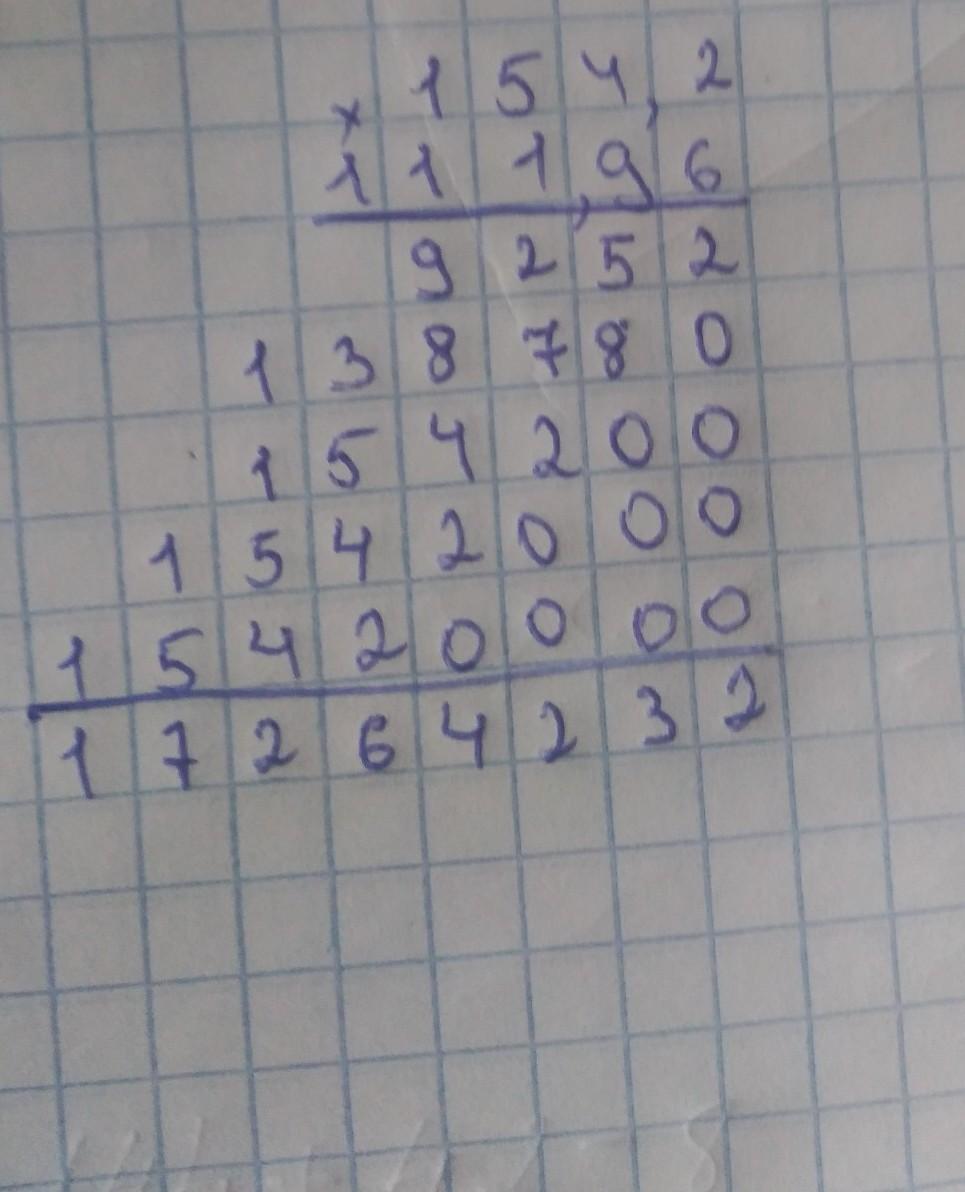 154,2
×
111,96
9252
138780
154200
1542000
15420000
17264232